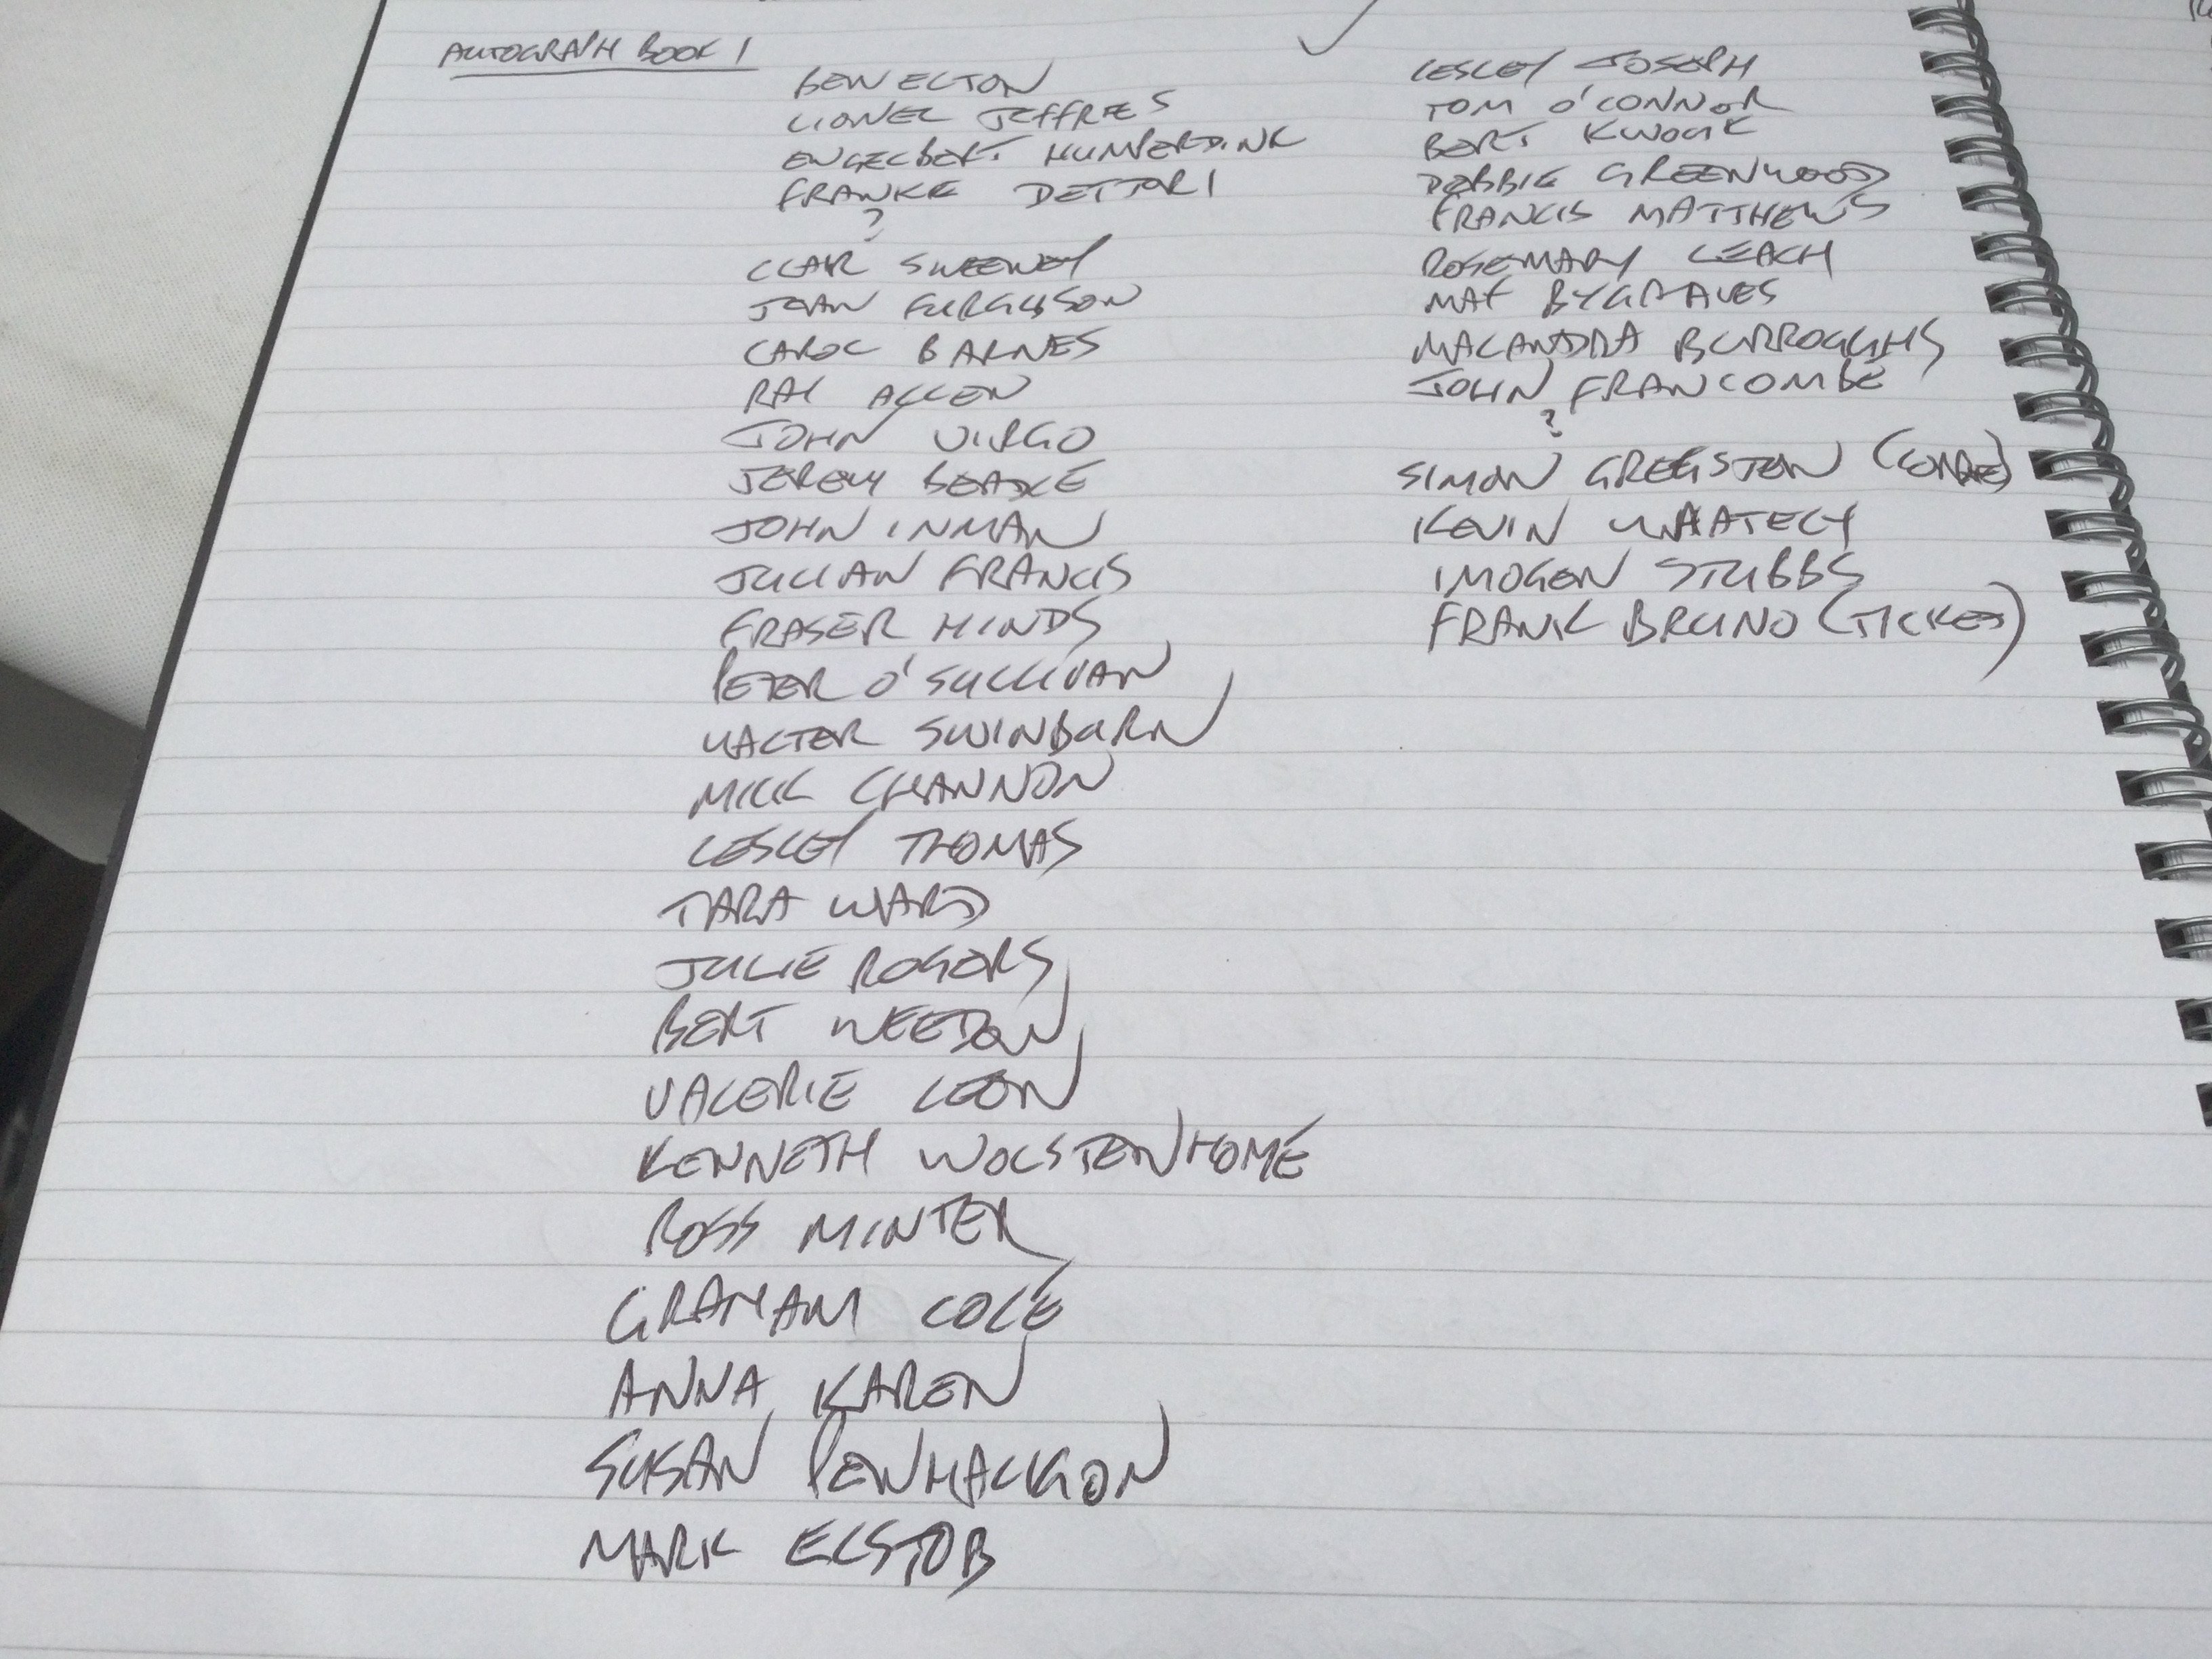 AUTOGRAPH BOOK 1
BEN ELTON
LIONEL JEFFRIES
ENGELBERT HUMPERDINK
FRANKE DETTORI
?
CLAIR SWEENEY
JOHN FURGUSON
CAROL BARNES
RAY ALLEN
JOHN VIRGO
JEREMY BEADLE
JOHN INMAN
JULIAN FRANCIS
FRASER HINDS
PETER O'SULLIVAN
WALTER SWINBURN
MICK CHANNON
LESLEY THOMAS
TARA WARD
JULIE ROGERS
BERT WEEDON
VALERIE LEON
KENNETH WOLSTENHOME
ROSS MINTER
GRAHAM COLE
ANNA KAREN
SUSAN PENHALIGON
MARK ELSTOB
LESLEY JOSEPH
TOM O'CONNOR
BERT KWOUK
DEBBIE GREENWOOD
FRANCIS MATTHEWS
ROSEMARY LEACH
MAX BYGRAVES
MALANDRA BURROUGHS
JOHN FRANCOMBE
?
SIMON GREGSTON
KEVIN WHATELY
IMOGEN STUBBS
FRANK BRUNO (TICKET)